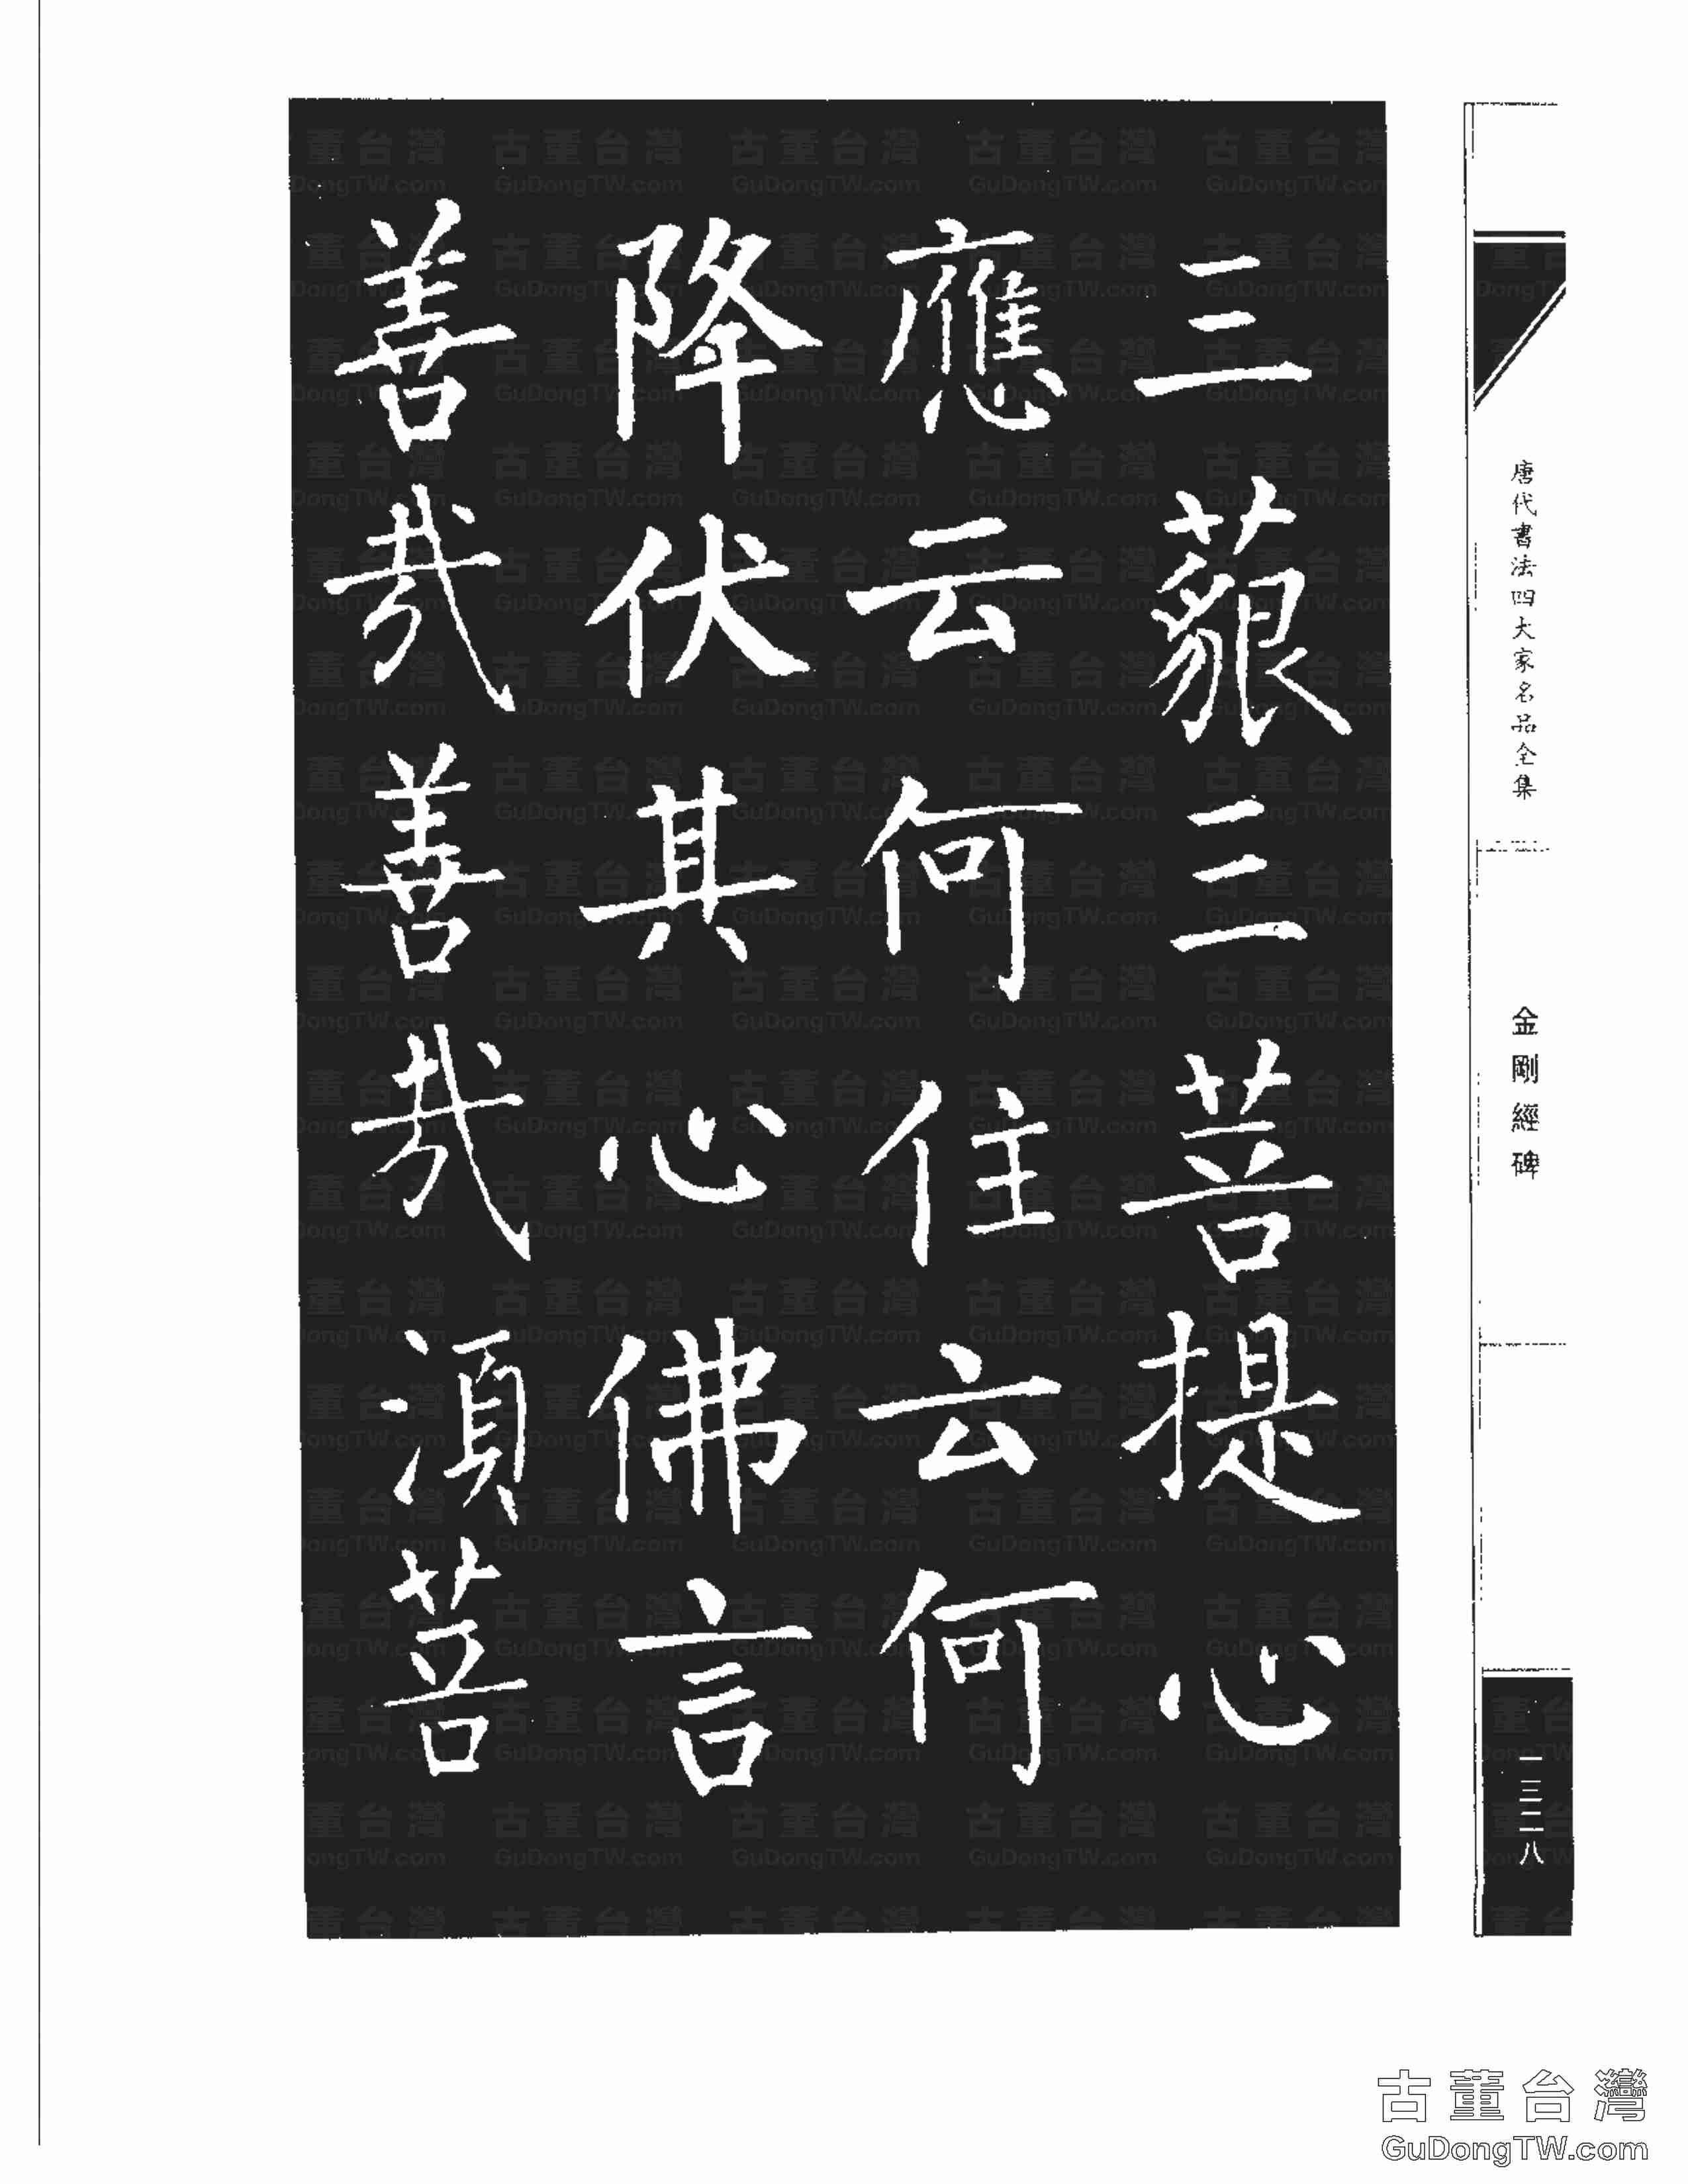 唐代書法四大家名品全集
金剛經碑
一三二八
三藐三菩提心
應云何住云何
降伏其心佛言
善哉善哉須菩
古董台灣
GuDongTW.com